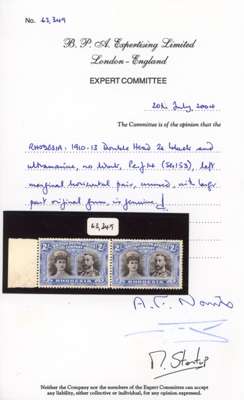 No. 63,349
B. P. A. Expertising Limited
London - England
EXPERT COMMITTEE
20th July, 2004
The Committee is of the opinion that the
RHODESIA - 1910-13 Double Head 2s black and
ultramarine, no, Perf 14 (SG153), left
marginal horizontal pair, unused, with large
part original gum, is genuine.
63,349
RHODESIA
RHODESIA
Neither the Company nor the members of the Expert Committee can accept
any liability, either collective or individual, for any opinion expressed.